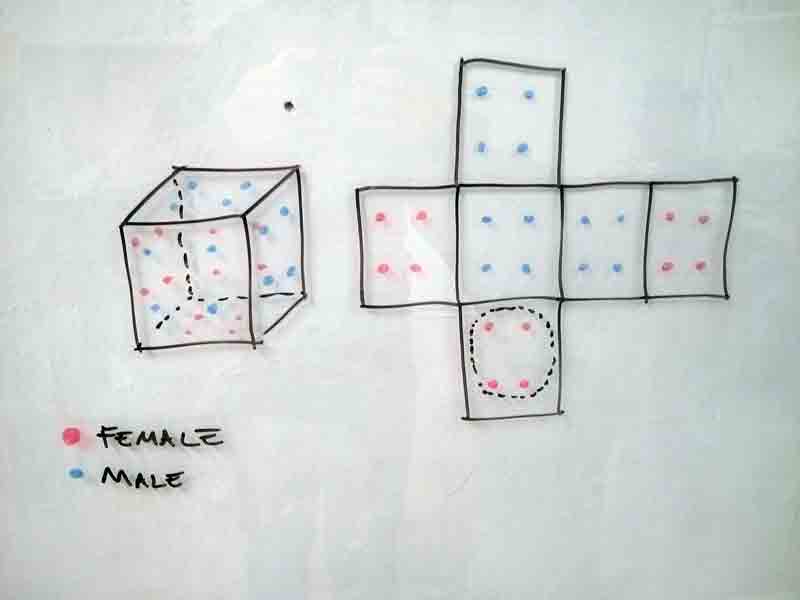 FEMALE
MALE